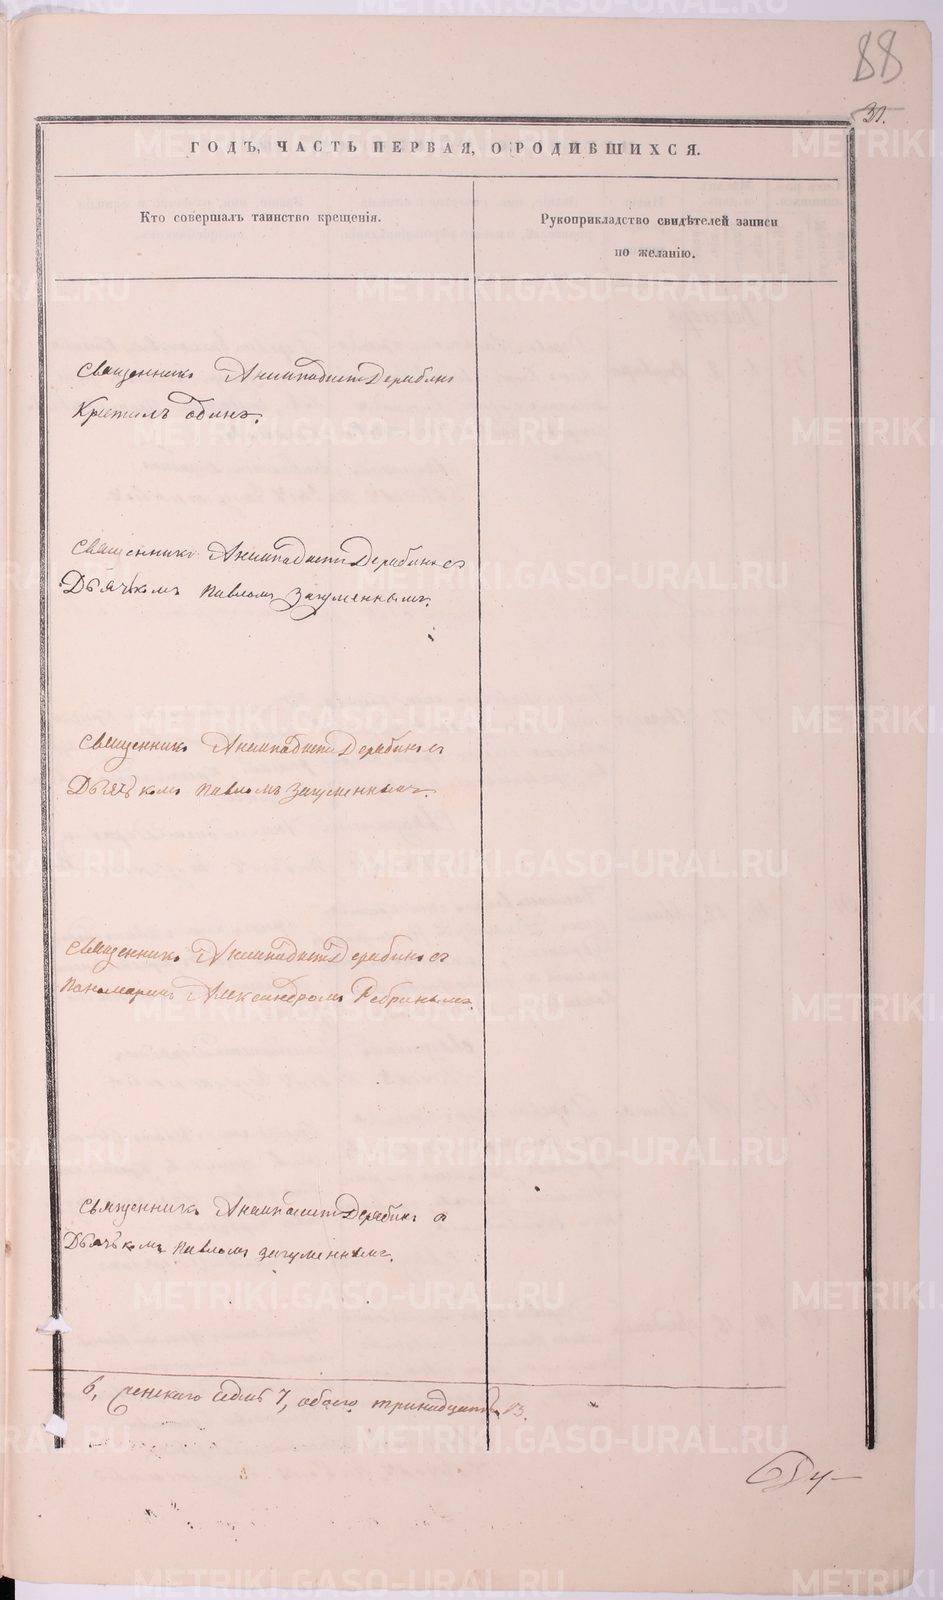 88
31.
ГОДЪ, ЧАСТЬ ПЕРВАЯ, О РОДИВШИХСЯ.
Кто совершалъ таинство крещенія.
Рукоприкладство свидѣтелей записи
по желанію.
Священникъ Анемподистъ Дерябинъ
крестилъ одинъ.
Священникъ Анемподистъ Дерябинъ съ
Дьячкомъ Павломъ Загуменнымъ.
Священникъ Анемподистъ Дерябинъ съ
Дьячкомъ Павломъ Загуменнымъ.
Священникъ Анемподистъ Дерябинъ съ
Пономаремъ Александромъ Ребринымъ.
Священникъ Анемподистъ Дерябинъ съ
Дьячкомъ Павломъ Загуменнымъ.
6, женскаго седмь 7, обоего тринадцать 13.
METRIKI.GASO-URAL.RU